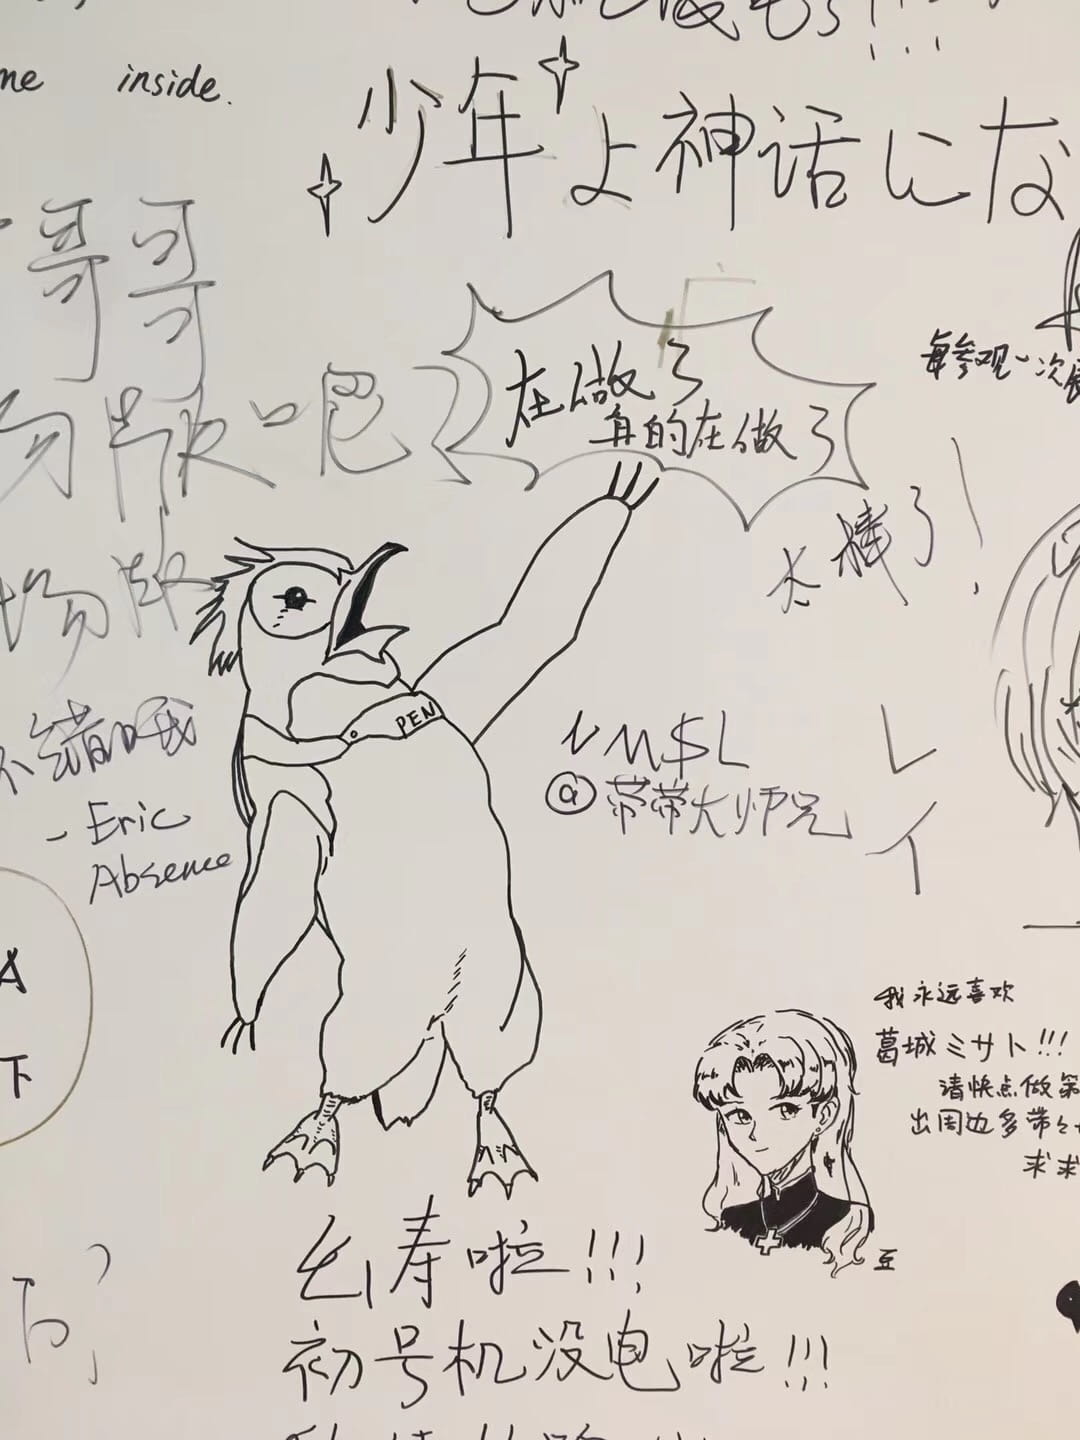 me inside.
少年よ神话にな
哥哥
在做了
真的在做了
每参观一次
吧
太棒了!
PEN
不错哦
- Eric
Absence
@带带大师兄
レ
イ
A
下
我永远喜欢
葛城ミサト!!!
请快点做第
出周边多带
求求
豆
夭寿啦!!!
初号机没电啦!!!